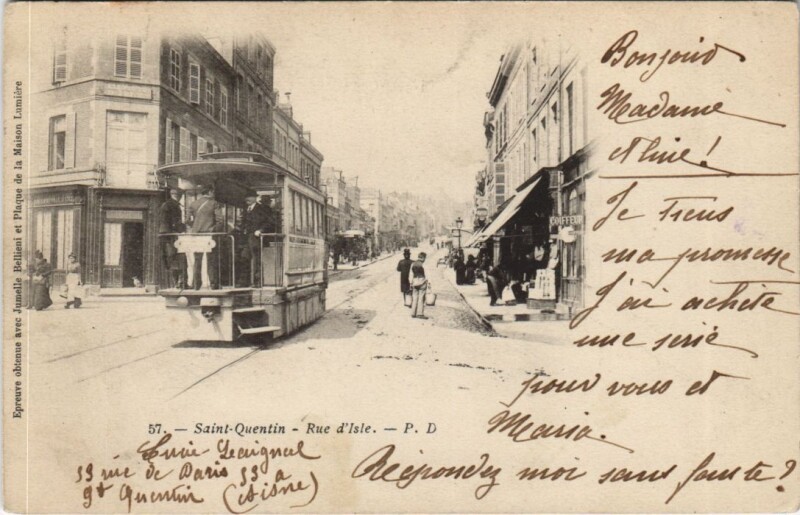 Bonjour
Madame
Aline!
Je tiens
ma promesse
J'ai acheté
une serie
pour vous et
Maria.
Répondez moi sans faute?
57. — Saint-Quentin - Rue d'Isle. — P. D
53 rue de Paris 53 a
St Quentin (Aisne)
Epreuve obtenue avec Jumelle Bellieni et Plaque de la Maison Lumière
COIFFEUR